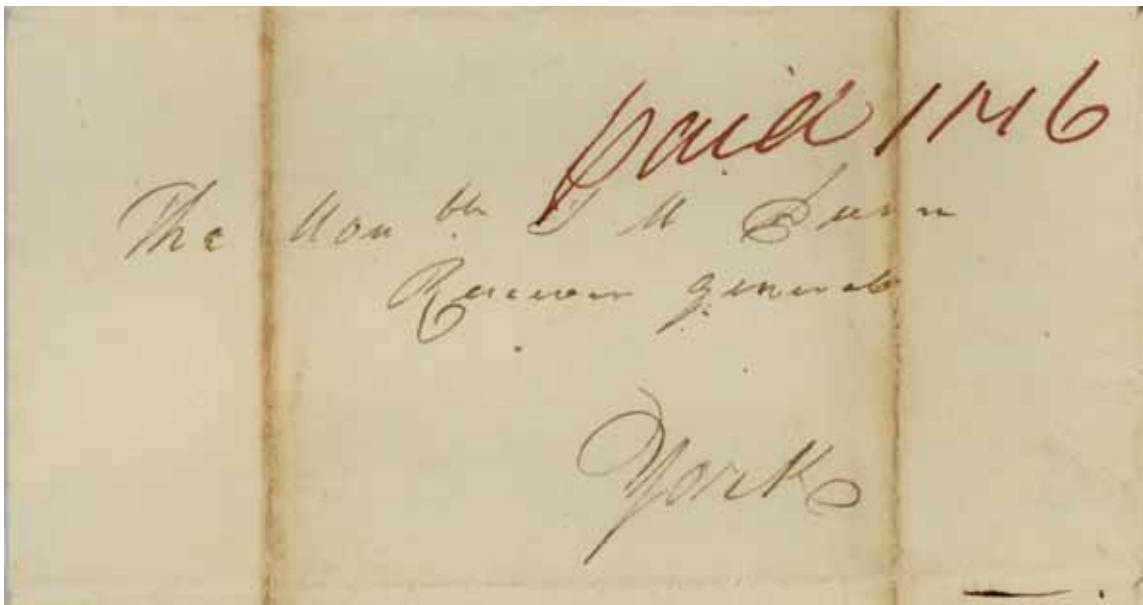 Paid 1N6
The Hon ble J H Dunn
Receiver General
York